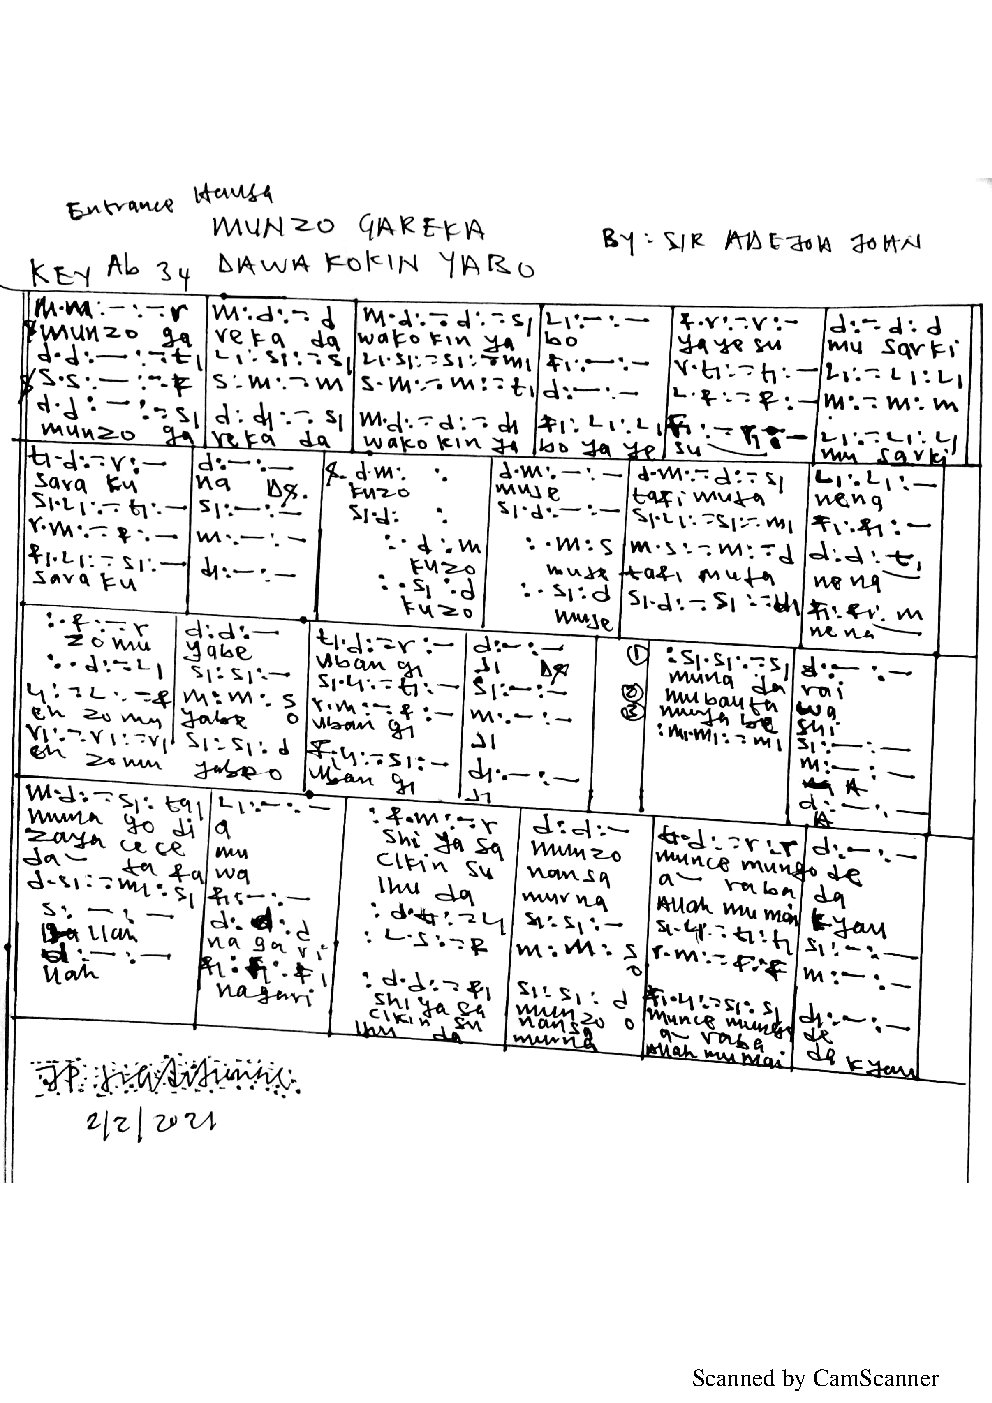 Entrance Hausa
MUNZO GAREKA
BY: SIR ADEJOH JOHN
KEY Ab 34 DAWA KOKIN YABO
m.m:-:-r m:d:-d m.d:-d:-s₁ L₁:-:- f.r:-r:- d:-d:d
munzo ga reka da wako kin ya bo ya ye su mu sarki
d.d:-:-t₁ L₁:s₁:-s₁ L₁.s₁:-s₁:-m₁ f₁:-:- r.t₁:-t₁:- L₁:-L₁:L₁
s.s:-:-f s:m:-m s.m:-m:-t₁ d:-:- L.f:-f:- m:-m:m
d.d:-:-s₁ d:d₁:-s₁ m.d:-d:-d₁ f₁:L₁:L₁ L₁:-L₁:L₁
munzo ga reka da wako kin ya bo ya ye su mu sarki
t₁.d:-r:- d:-:- d.m: : d.m:-:- d.m:-d:-s₁ L₁:L₁:-
sara ku na D.S. kuzo muje tafi muta nena
s₁.L₁:-t₁:- s₁:-:- s₁.d: : s₁.d:-:- s₁.L₁:-s₁:-m₁ f₁:f₁:-
r.m:-f:- m:-:- :.d:m :.m:s m.s:-m:-d d:d:t₁
kuzo muje tafi muta nena
f₁.L₁:-s₁:- d₁:-:- :.s₁:d :.s₁:d s₁.d:-s₁:-d₁ f₁:f₁:m
sara ku kuzo muje nena
:.f:-r d:d:- t₁.d:-r:- d:-:- ① :s₁.s₁:-s₁ d:-:-
zo mu yabe uban gi ji D.S. muna da rai
:.d:-L₁ s₁:s₁:- s₁.L₁:-t₁:- s₁:-:- ② mu bauta wa
m:m:s r.m:-f:- m:-:- ③ mu ya be shi
en zo mu yabe o uban gi ji :m₁.m₁:-m₁ s₁:-:-
s₁:s₁:d f₁.L₁:-s₁:- d₁:-:- m:-:-
en zo mu yabe o uban gi ji d:-:-
m.d:-s₁:ta₁ L₁:-:- :f.m:-r d:d:- t₁.d:-r:r d:-:-
muna go di a shi ya sa munzo munce mungo de
zaya ce ce mu cikin su nansa a raba da
da ta fa wa Ihu da murna Allah mu mai kyau
d.s₁:-m₁:s₁ f₁:-:- :d.t₁:-L₁ s₁:s₁:- s₁.L₁:-t₁:t₁ s₁:-:-
s:-:- d:d:d :L.s:-f m:m:s r.m:-f:f m:-:-
llah na ga ri o
d:-:- f₁:f₁:f₁ :d.d:-f₁ s₁:s₁:d f₁.L₁:-s₁:s₁ d₁:-:-
llah nagari shi ya sa munzo o munce mungo de
cikin su nansa a raba da
Ihu da murna Allah mu mai kyau
2/2/2021
Scanned by CamScanner